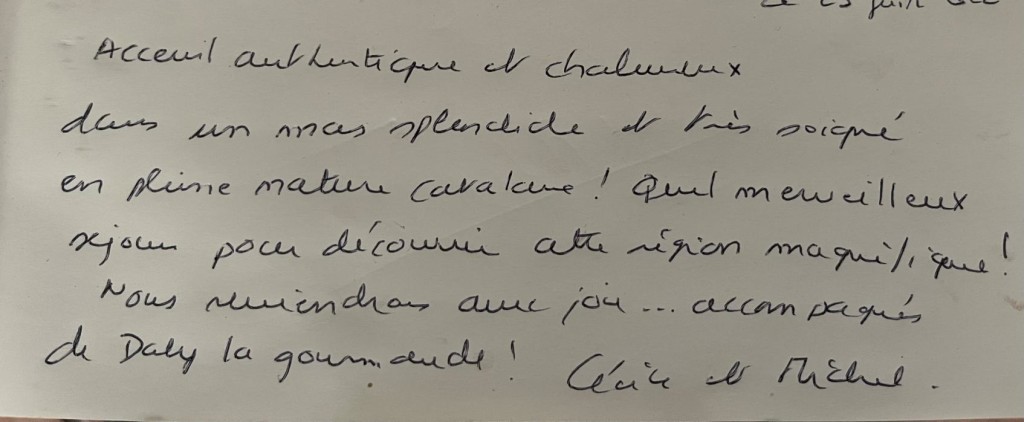 Acceuil authentique et chaleureux
dans un mas splendide et très soigné
en pleine nature catalane ! Quel merveilleux
séjour pour découvrir cette région magnifique !
Nous reviendrons avec joie ... accompagnés
de Daly la gourmande !
Cécile et Michel.